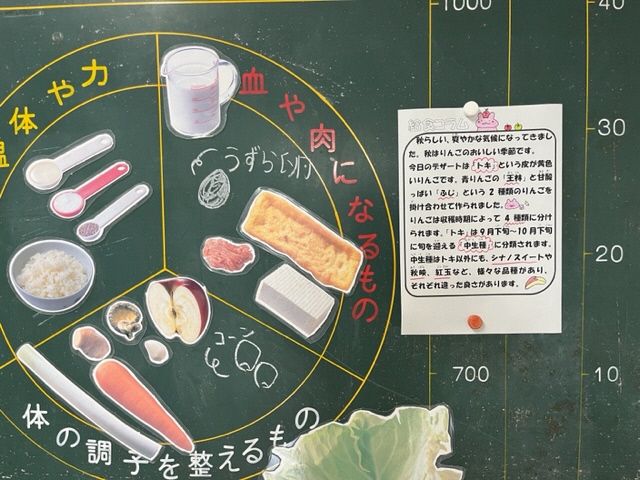 体や力
温
血や肉になるもの
うずら
コーン
体の調子を整えるもの
給食コラム
秋らしい、爽やかな気候になってきまし
た。秋はりんごのおいしい季節です。
今日のデザートは「トキ」という皮が黄色
いりんごです。青りんごの「王林」と甘酸
っぱい「ふじ」という2種類のりんごを
掛け合わせて作られました。
りんごは収穫時期によって4種類に分け
られます。「トキ」は9月下旬〜10月下旬
に旬を迎える「中生種」に分類されます。
中生種はトキ以外にも、シナノスイートや
秋映、紅玉など、様々な品種があり、
それぞれ違った良さがあります。
1000
40
30
20
700
10